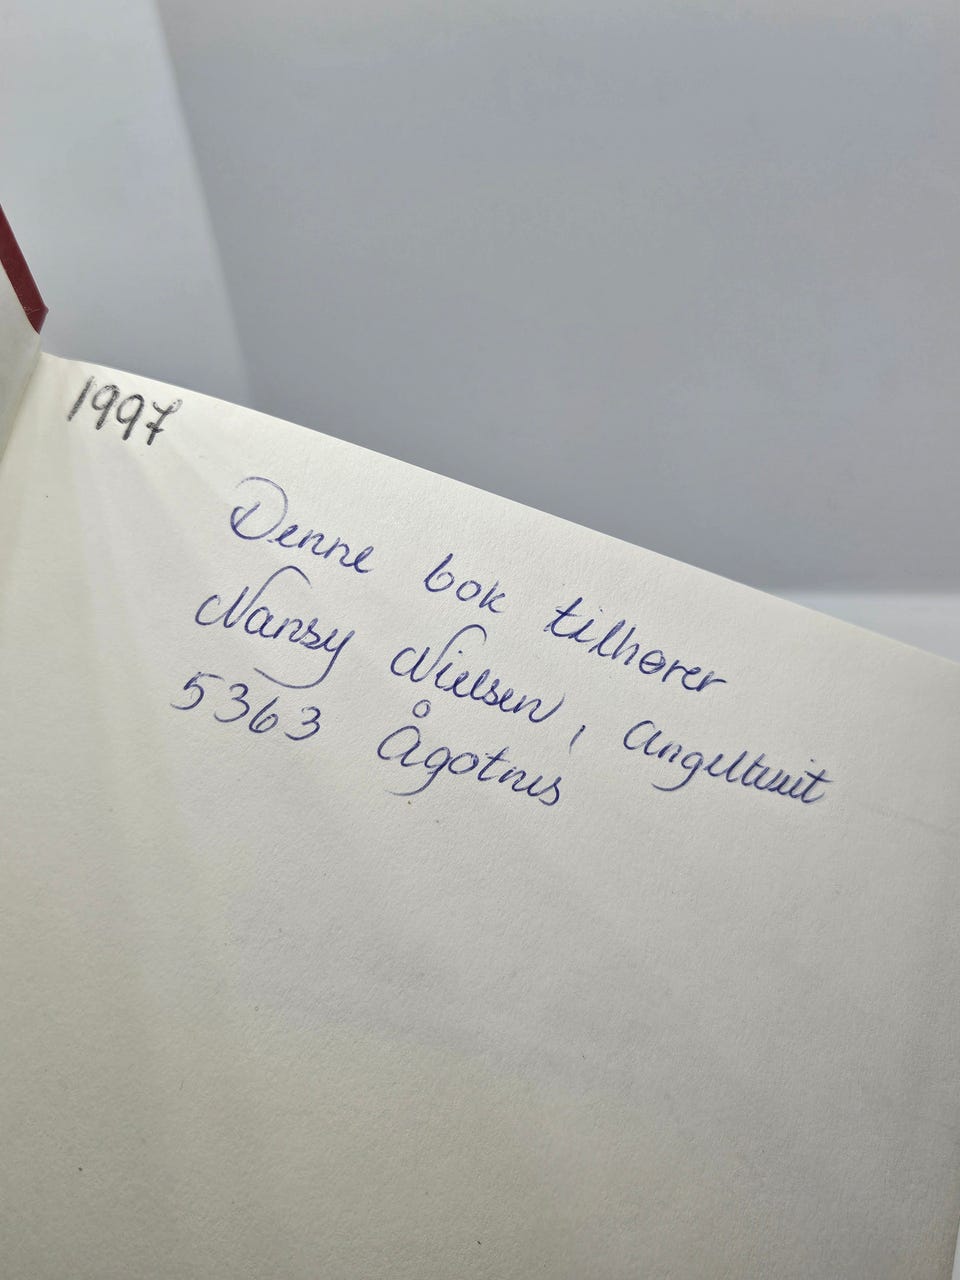 1997
Denne bok tilhører
Nansy Nielsen, Angeltveit
5363 Ågotnes